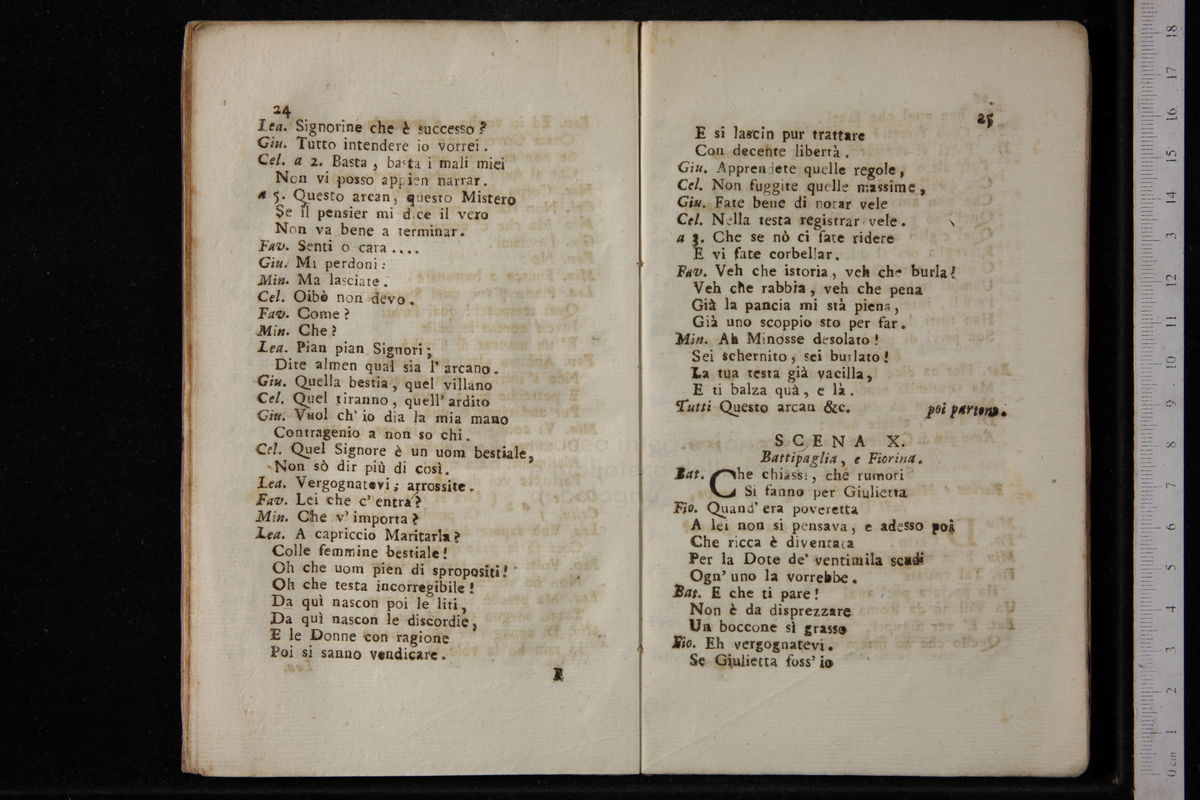 24
Lea. Signorine che è successo?
Giu. Tutto intendere io vorrei.
Cel. a 2. Basta, basta i mali miei
Non vi posso appien narrar.
a 5. Questo arcan, questo Mistero
Se il pensier mi dice il vero
Non va bene a terminar.
Fav. Senti o cara ....
Giu. Mi perdoni:
Min. Ma lasciate.
Cel. Oibò non devo.
Fav. Come?
Min. Che?
Lea. Pian pian Signori;
Dite almen qual sia l' arcano.
Giu. Quella bestia, quel villano
Cel. Quel tiranno, quell' ardito
Giu. Vuol ch' io dia la mia mano
Contragenio a non so chi.
Cel. Quel Signore è un uom bestiale,
Non sò dir più di così.
Lea. Vergognatevi; arrossite.
Fav. Lei che c' entra?
Min. Che v' importa?
Lea. A capriccio Maritarla?
Colle femmine bestiale!
Oh che uom pien di spropositi!
Oh che testa incorregibile!
Da quì nascon poi le liti,
Da quì nascon le discordie,
E le Donne con ragione
Poi si sanno vendicare.
E
25
E si lascin pur trattare
Con decente libertà.
Giu. Apprendete quelle regole,
Cel. Non fuggite quelle massime,
Giu. Fate bene di notar vele
Cel. Nella testa registrar vele.
a 3. Che se nò ci fate ridere
E vi fate corbellar.
Fav. Veh che istoria, veh che burla!
Veh che rabbia, veh che pena
Già la pancia mi stà piena,
Già uno scoppio sto per far.
Min. Ah Minosse desolato!
Sei schernito, sei burlato!
La tua testa già vacilla,
E ti balza quà, e là.
Tutti Questo arcan &c. poi partono.
SCENA X.
Battipaglia, e Fiorina.
Bat. Che chiassi, che rumori
Si fanno per Giulietta
Fio. Quand' era poveretta
A lei non si pensava, e adesso poi
Che ricca è diventata
Per la Dote de' ventimila scudi
Ogn' uno la vorrebbe.
Bat. E che ti pare!
Non è da disprezzare
Un boccone sì grasso
Fio. Eh vergognatevi.
Se Giulietta foss' io